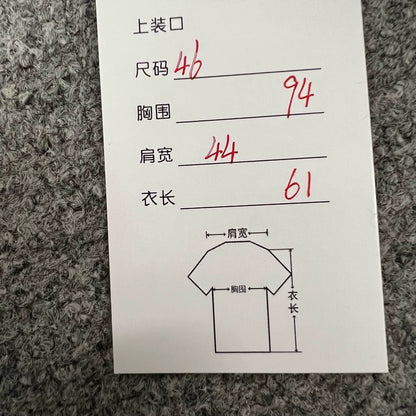 上装口
尺码 46
胸围 94
肩宽 44
衣长 61
肩宽
胸围
衣长